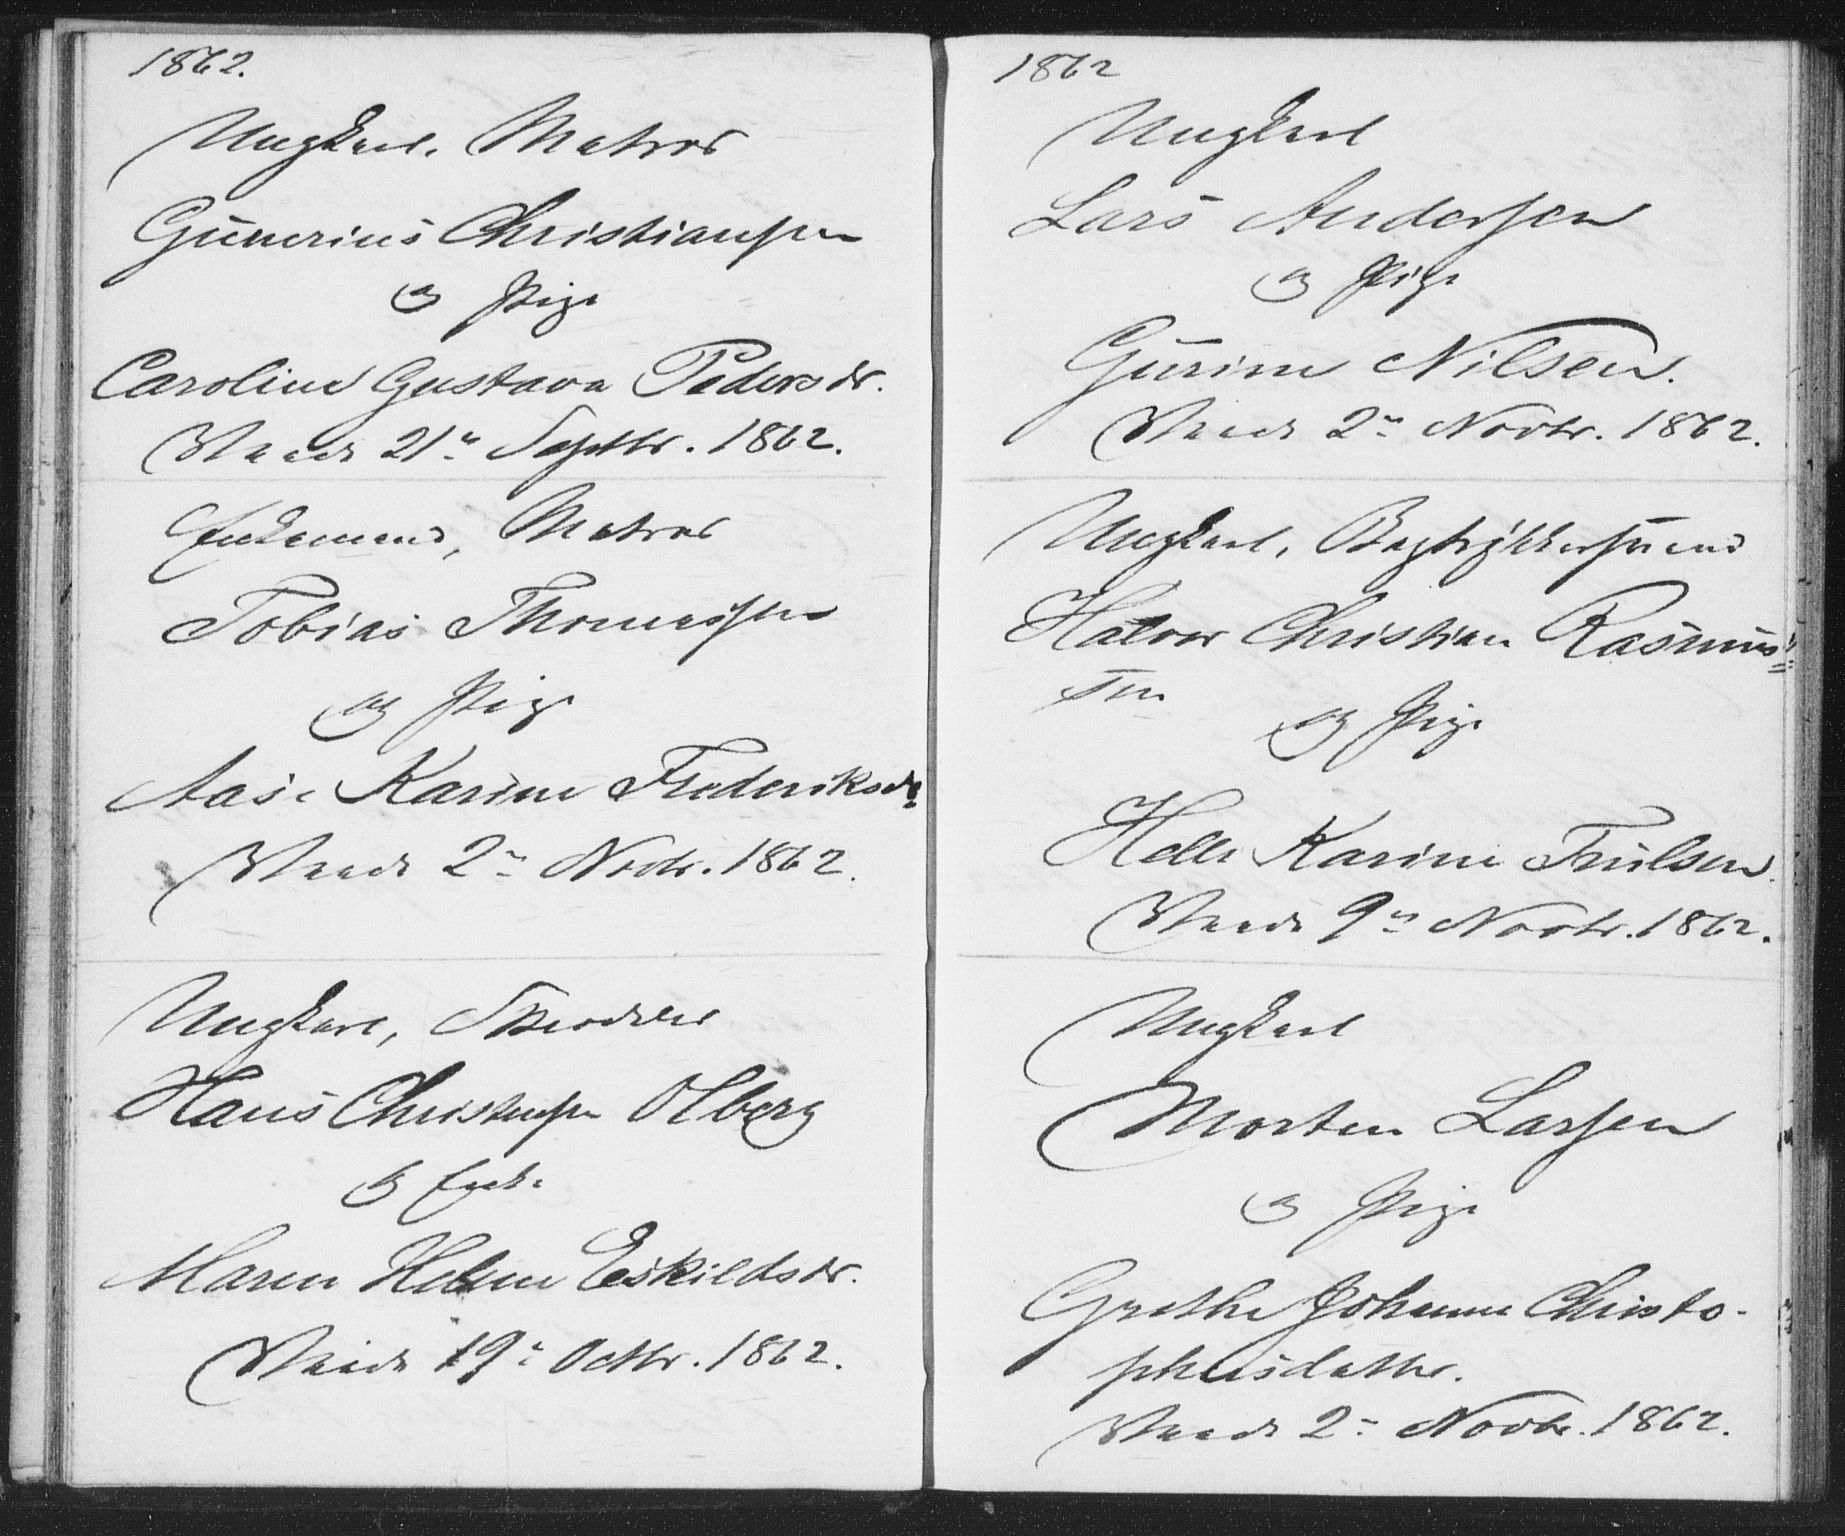 1862.
Ungkarl, Matros
Gunerius Christiansen
og Pige
Caroline Gustava Pedersdr.
Viede 21de Septbr. 1862.
Enkemand, Matros
Tobias Thomassen
og Pige
Aase Karine Frederiksdr.
Viede 2de Novbr. 1862.
Ungkarl,
Hans Christensen Olberg
og Enke
Maren Helene Eskildsdr.
Viede 19de Octbr. 1862.
1862
Ungkarl
Lars Andersen
og Pige
Gurine Nilsen.
Viede 2de Novbr. 1862.
Ungkarl, Bogtrykkersvend
Halvor Christian Rasmus=
sen
og Pige
Helle Karine Trulsen.
Viede 9de Novbr. 1862.
Ungkarl
Morten Larsen
og Pige
Grethe Johanne Christo-
phersdatter.
Viede 2de Novbr. 1862.